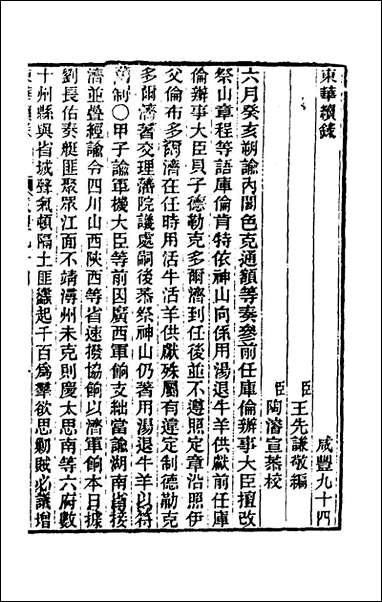 東華續錄
咸豐九十四
臣王先謙敬編
臣陶濬宣恭校
六月癸亥朔諭內閣色克通額等奏參前任庫倫辦事大臣擅改
祭山章程等語庫倫肯特依神山向係用湯退牛羊供獻前任庫
倫辦事大臣貝子德勒克多爾濟到任後並不遵照定章沿照伊
父倫布多爾濟在任時用活牛活羊供獻殊屬有違定制德勒克
多爾濟著交理藩院議處嗣後恭祭神山仍著用湯退牛羊以符
舊制○甲子諭軍機大臣等前因廣西軍餉支絀當諭湖南省接
濟並疊經諭令四川山西陝西等省速撥協餉以濟軍餉本日據
劉長佑奏艇匪聚眾江面不靖潯州未克則慶太思南等六府數
十州縣與省城聲氣頓隔土匪蠭起千百為羣欲思勦賊必議增